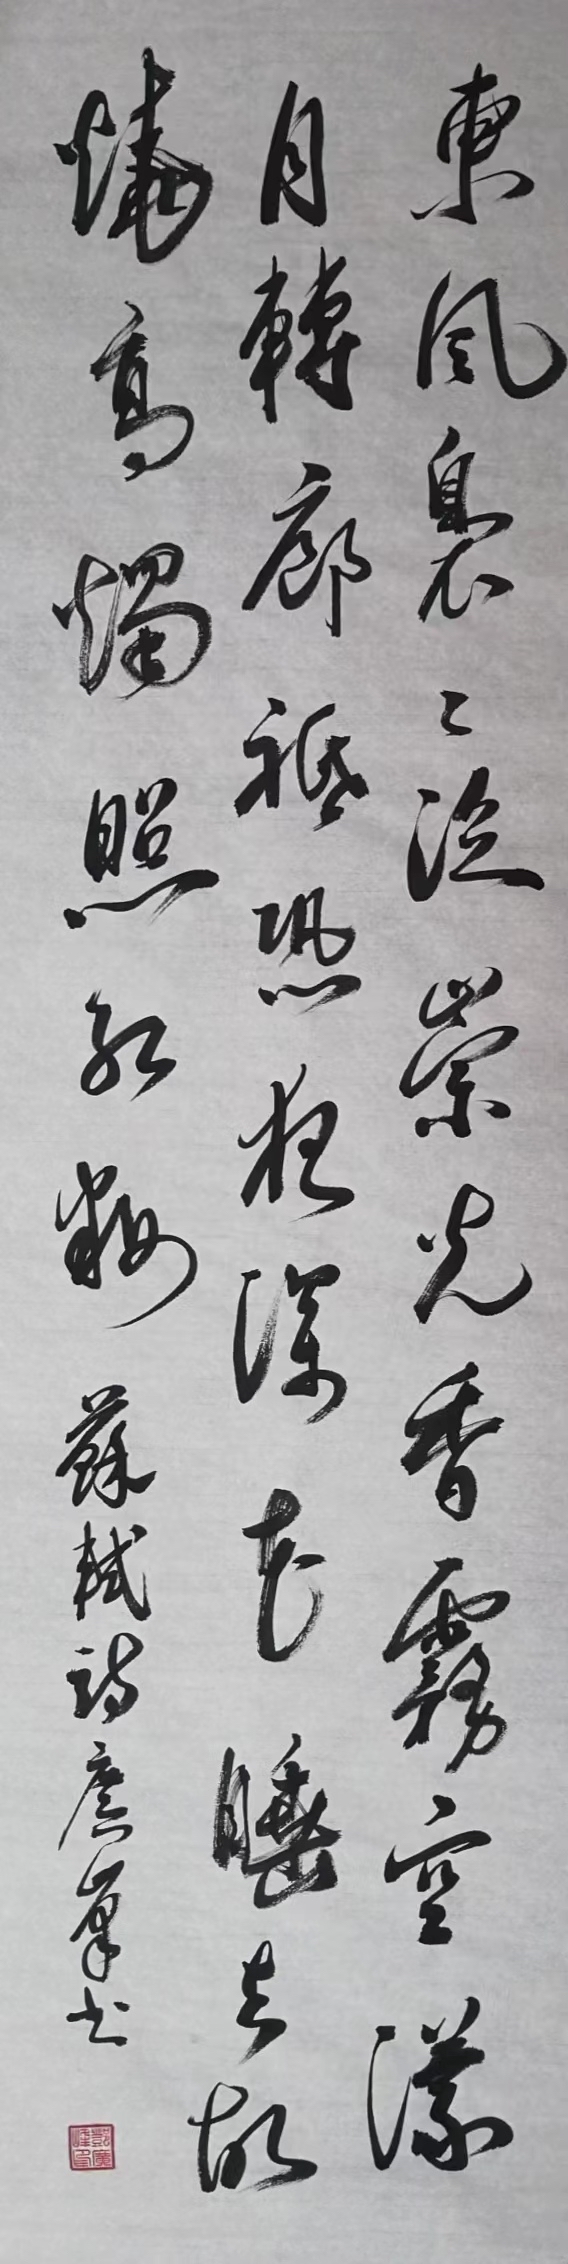 東風裊〻泛崇光香霧空濛
月轉廊祗恐夜深花睡去故
燒高燭照紅妝 蘇軾詩 廣峯书